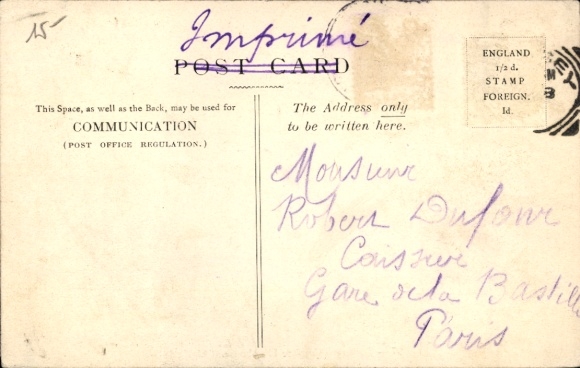 15-
Imprimé
POST CARD
ENGLAND
1/2 d.
STAMP
FOREIGN.
1d.
EY
M
8
This Space, as well as the Back, may be used for
COMMUNICATION
(POST OFFICE REGULATION.)
The Address only
to be written here.
Monsieur
Robert Dufour
Caissier
Gare de la Bastille
Paris